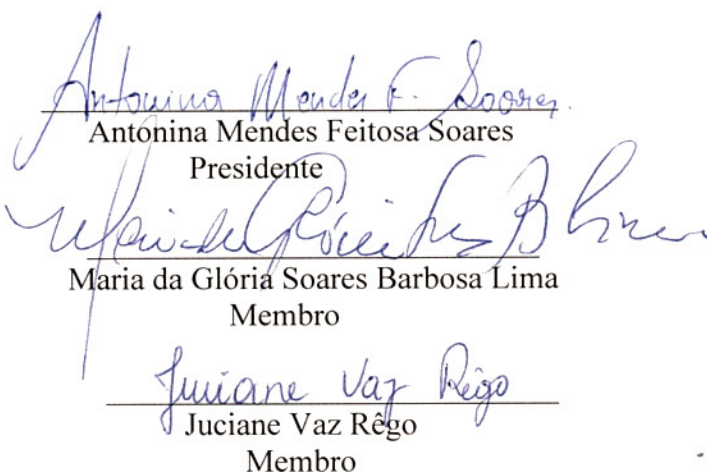 Antonina Mendes F. Soares.
Antonina Mendes Feitosa Soares
Presidente
Maria da Glória B Lima
Maria da Glória Soares Barbosa Lima
Membro
Juciane Vaz Rêgo
Juciane Vaz Rêgo
Membro